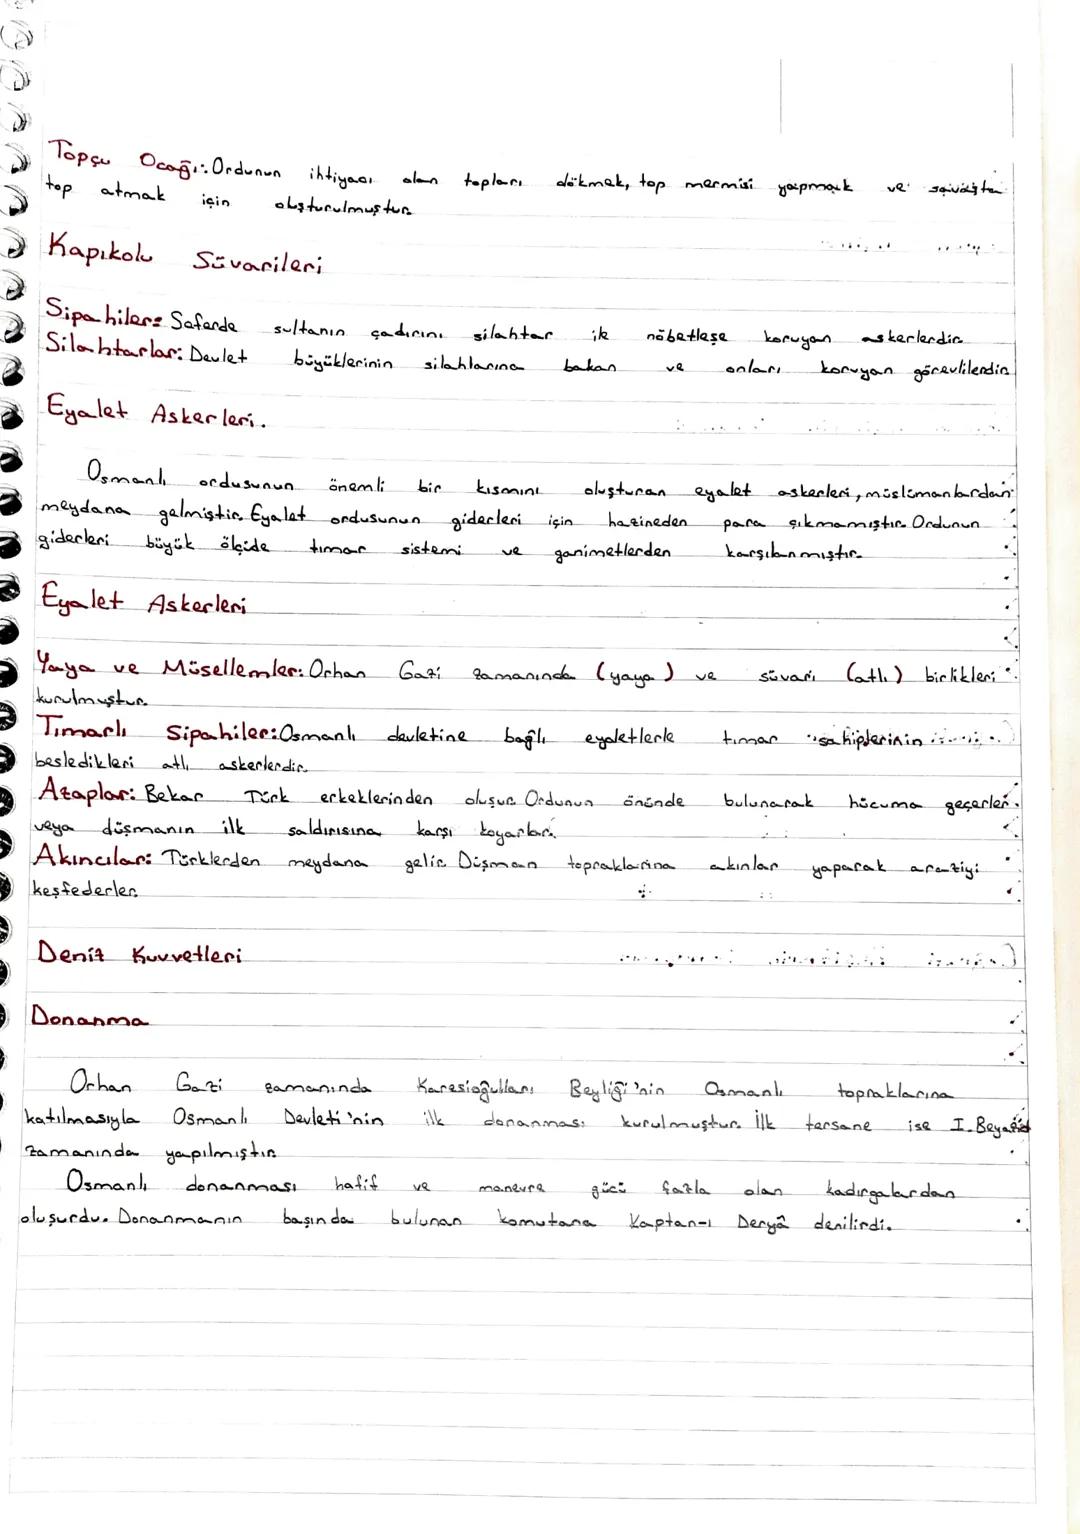 Topçu Ocağı: Ordunun ihtiyacı olan topları dökmek, top mermisi yapmak ve savaşta
top atmak için oluşturulmuştur.
Kapıkolu Süvarileri
Sipahiler: Seferde sultanın çadırını silahtar ile nöbetleşe koruyan askerlerdir.
Silahtarlar: Devlet büyüklerinin silahlarına bakan ve onları koruyan görevlilerdir.
Eyalet Askerleri.
Osmanlı ordusunun önemli bir kısmını oluşturan eyalet askerleri, müslümanlardan
meydana gelmiştir. Eyalet ordusunun giderleri için hazineden para çıkmamıştır. Ordunun
giderleri büyük ölçüde tımar sistemi ve ganimetlerden karşılanmıştır.
Eyalet Askerleri
Yaya ve Müsellemler: Orhan Gazi zamanında (yaya) ve süvari (atlı) birlikleri
kurulmuştur.
Tımarlı Sipahiler: Osmanlı devletine bağlı eyaletlerle tımar sahiplerinin
besledikleri atlı askerlerdir.
Azaplar: Bekar Türk erkeklerinden oluşur. Ordunun önünde bulunarak hücuma geçerler.
veya düşmanın ilk saldırısına karşı koyarlar.
Akıncılar: Türklerden meydana gelir. Düşman topraklarına akınlar yaparak araziyi
keşfederler.
Deniz Kuvvetleri
Donanma
Orhan Gazi zamanında Karesioğulları Beyliği'nin Osmanlı topraklarına
katılmasıyla Osmanlı Devleti'nin ilk donanması kurulmuştur. İlk tersane ise I. Beyazid
zamanında yapılmıştır.
Osmanlı donanması hafif ve manevra gücü fazla olan kadırgalardan
oluşurdu. Donanmanın başında bulunan komutana Kaptan-ı Deryâ denilirdi.